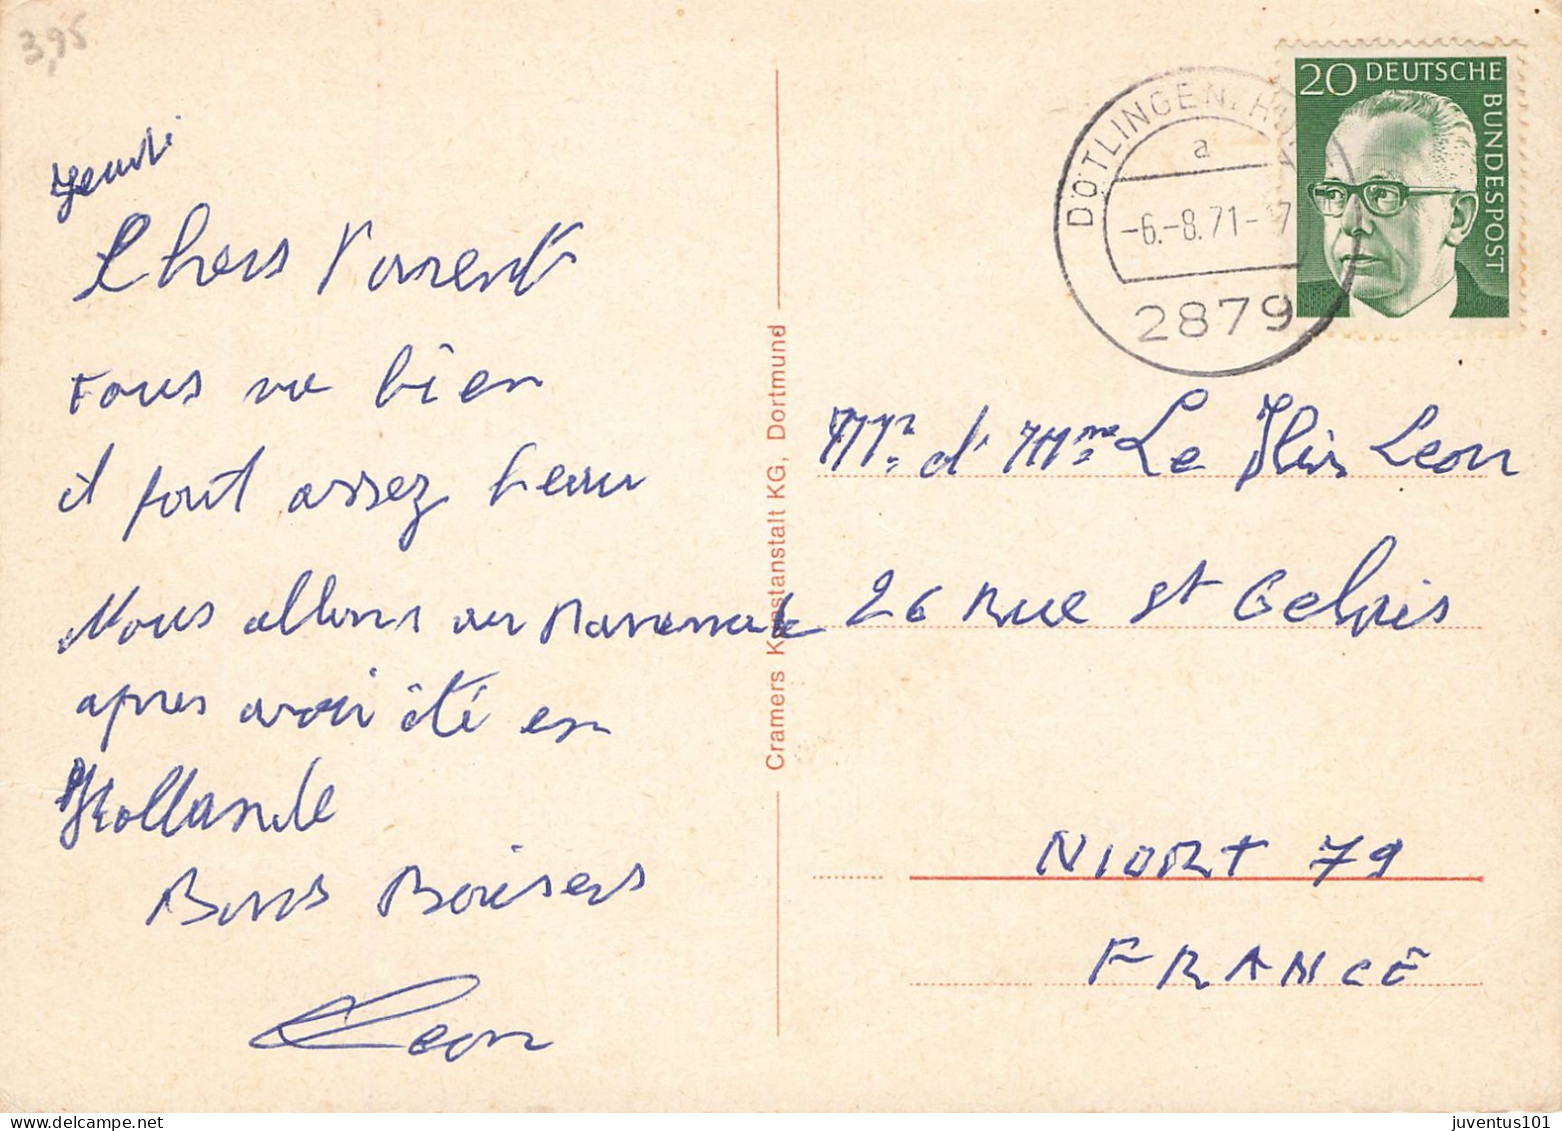 3,95
Jeudi
Chers Parents
Tous va bien
il fait assez beau
Nous allons au Danemark
apres avoir été en
Hollande
Bons Baisers
Leon
Cramers Kunstanstalt KG, Dortmund
DÖTLINGEN
a
-6.-8.71-
2879
20 DEUTSCHE
BUNDESPOST
Mr. et Mme Le Leon
26 Rue St Gelais
NIORT 79
FRANCE
juventus101